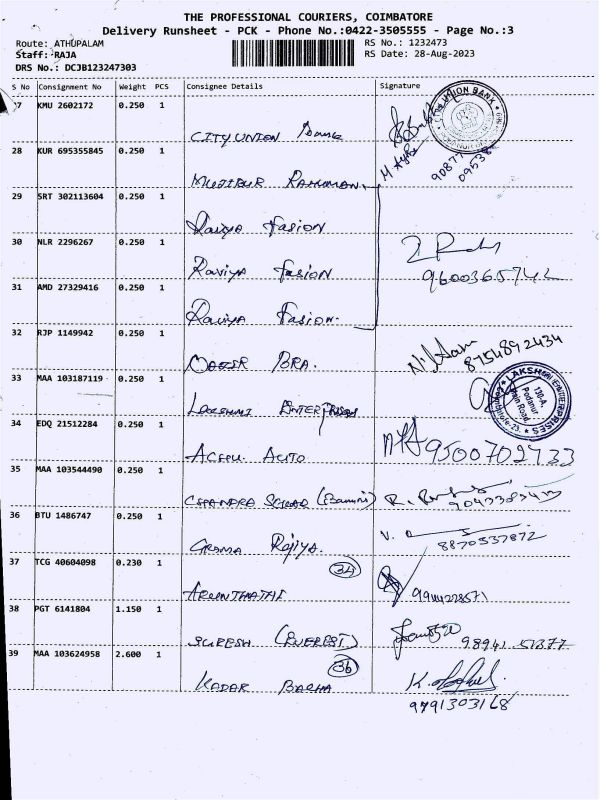 THE PROFESSIONAL COURIERS, COIMBATORE
Delivery Runsheet - PCK - Phone No.:0422-3505555 - Page No.:3
Route: ATHUPALAM RS No.: 1232473
Staff: RAJA RS Date: 28-Aug-2023
DRS No.: DCJB123247303
S No Consignment No Weight PCS Consignee Details Signature
KMU 2602172 0.250 1
CITY UNION Bank
28 KUR 695355845 0.250 1
MUJIBUR RAHUMAN
29 SRT 302113604 0.250 1
Raviya Fasion
30 NLR 2296267 0.250 1
Raviya Fasion
9600365742
31 AMD 27329416 0.250 1
Raviya Fasion.
32 RJP 1149942 0.250 1
8754892434
33 MAA 103187119 0.250 1
LAKSHMI ENTERPRISES
LAKSHMI ENTERPRISES
130-A,
Podanur
Main Road,
34 EDQ 21512284 0.250 1
AUTO
9500702733
35 MAA 103544490 0.250 1
36 BTU 1486747 0.250 1
8870537872
37 TCG 40604098 0.230 1
34
ARUNTHATHI
38 PGT 6141804 1.150 1
SURESH (EVEREST)
39 MAA 103624958 2.600 1
36
KADAR BASHA
9791303168